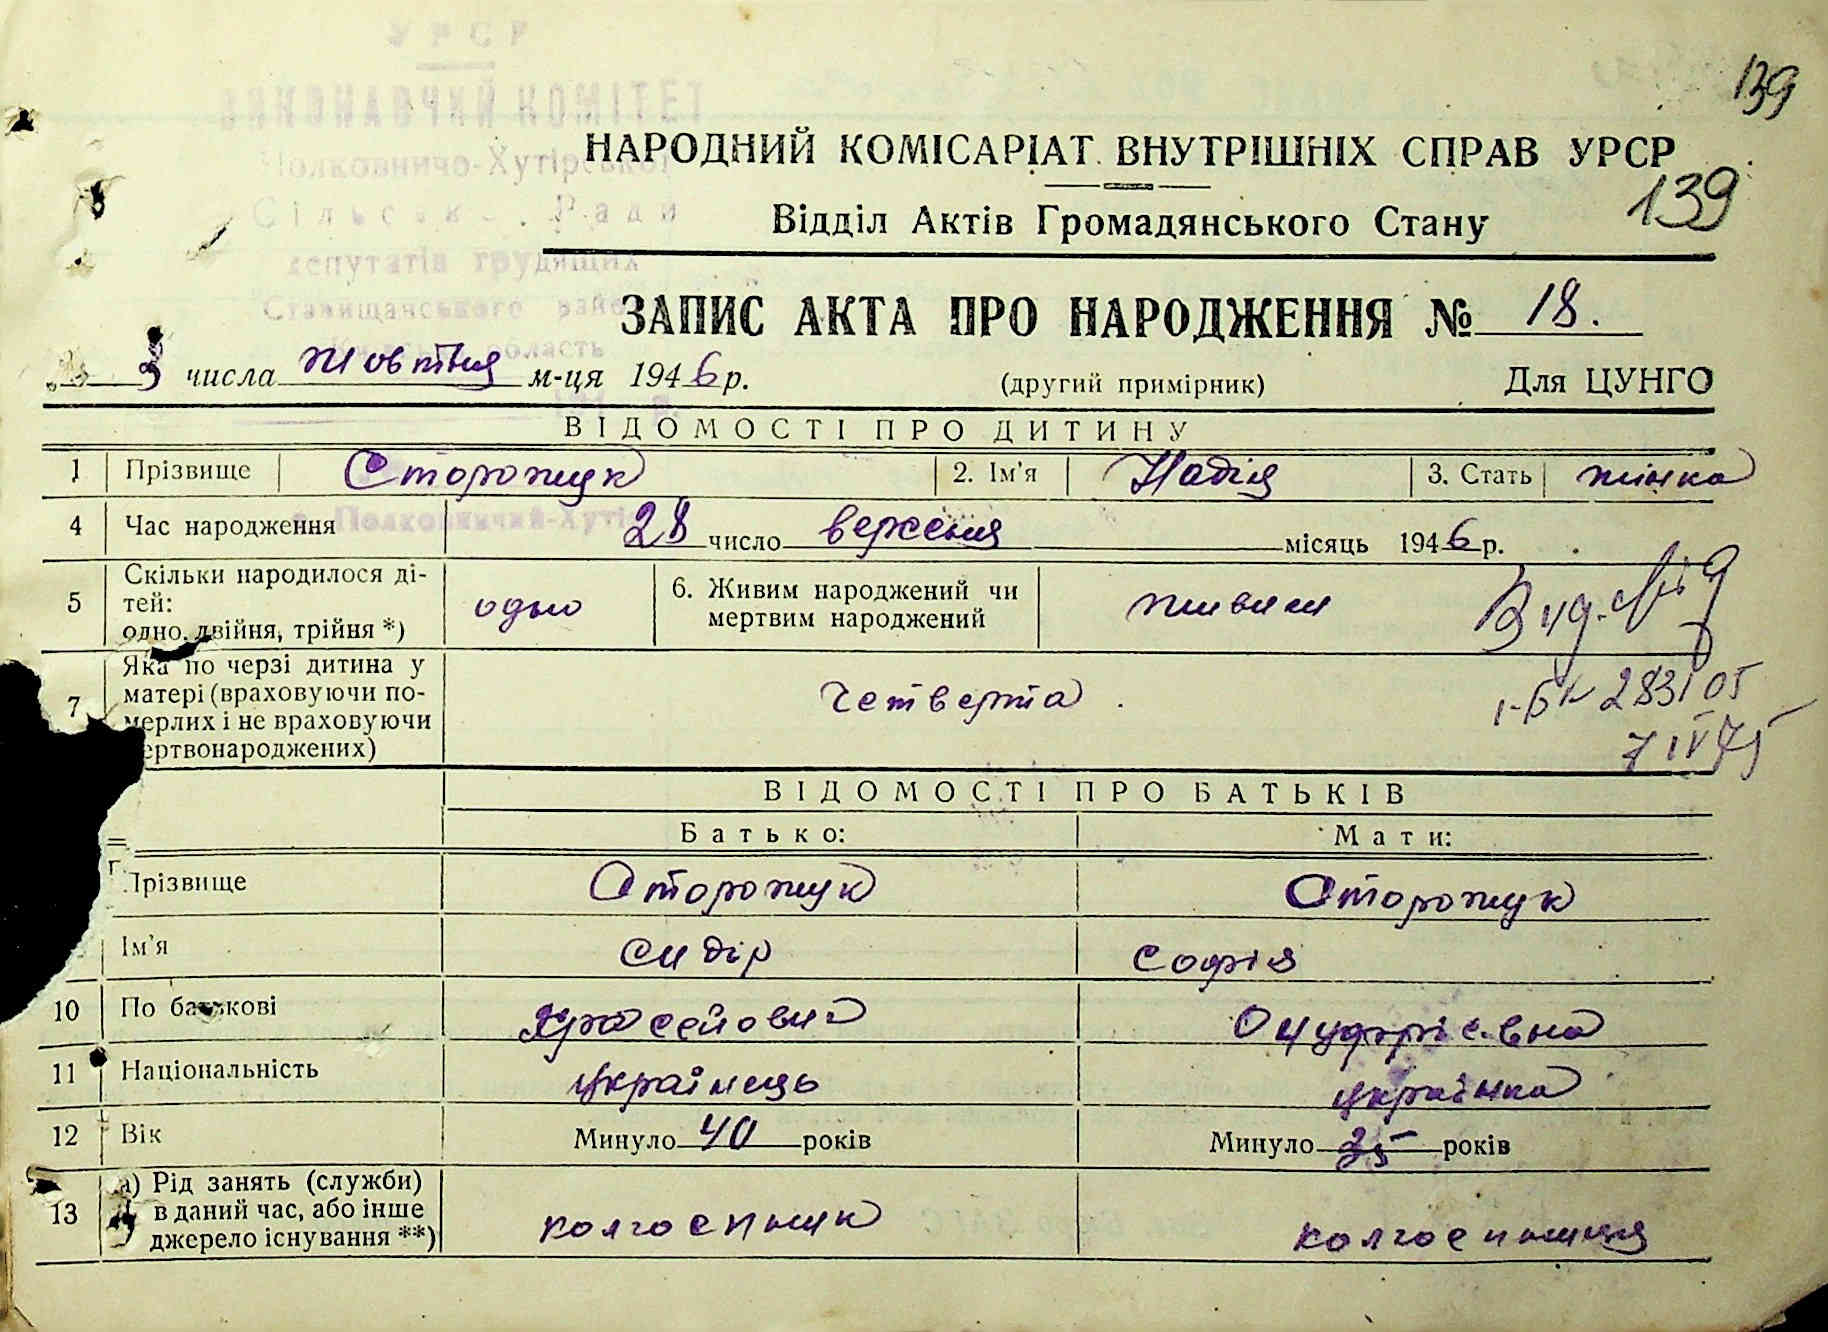 139
УРСР
ВИКОНАВЧИЙ КОМІТЕТ
Полковничо-Хутірської
Сільської Ради
депутатів трудящих
Ставищанського району
Київська область
НАРОДНИЙ КОМІСАРІАТ ВНУТРІШНІХ СПРАВ УРСР
139
Відділ Актів Громадянського Стану
ЗАПИС АКТА ПРО НАРОДЖЕННЯ № 18.
3 числа жовтня м-ця 1946 р. (другий примірник) Для ЦУНГО
ВІДОМОСТІ ПРО ДИТИНУ
1 Прізвище Сторожук 2. Ім'я Надія 3. Стать жінка
с. Полковничий-Хутір
4 Час народження 28 число вересня місяць 1946 р.
5 Скільки народилося ді-
тей:
одно, двійня, трійня *) одно 6. Живим народжений чи
мертвим народжений живим
7 Яка по черзі дитина у
матері (враховуючи по-
мерлих і не враховуючи
мертвонароджених) четверта.
283105
7 IV 75
ВІДОМОСТІ ПРО БАТЬКІВ
Батько: Мати:
Прізвище Сторожук Сторожук
Ім'я Сидір Софія
10 По батькові Онуфріевна
11 Національність українець українка
12 Вік Минуло 40 років Минуло 35 років
13 а) Рід занять (служби)
в даний час, або інше
джерело існування **) колгоспник колгоспниця